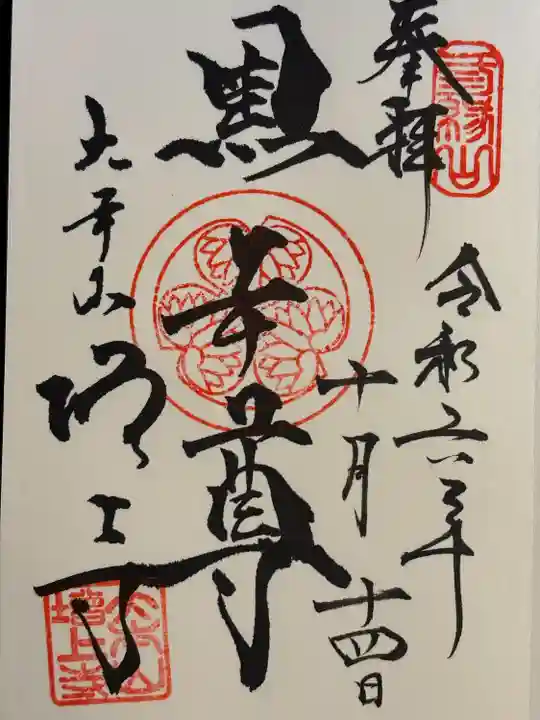 三緣山
奉拝
令和六年
十月十四日
黒本尊
大本山
増上寺
大本山
増上寺